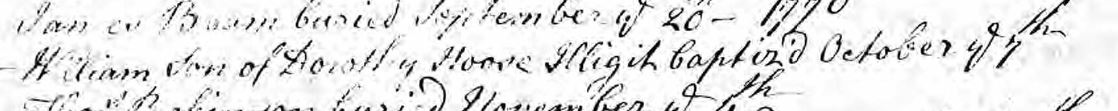 James Baum buried September ye 20 - 1770
William Son of Dorothy Hoove Illigit baptiz'd October ye 7th
Robinson buried November ye